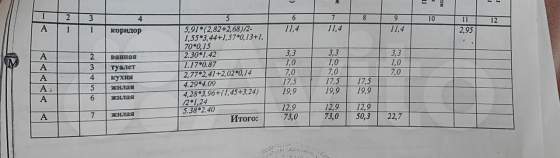 1 2 3 4 5 6 7 8 9 10 11 12
А 1 1 коридор 5,91*(2,82+2,68)/2- 11,4 11,4 11,4 2,95
1,55*3,44+1,57*0,13+1,
70*0,15
А 2 ванная 2.30*1.42 3,3 3,3 3,3
А 3 туалет 1.17*0.87 1,0 1,0 1,0
А 4 кухня 2,77*2,41+2,02*0,14 7,0 7,0 7,0
А 5 жилая 4.29*4.09 17,5 17,5 17,5
А 6 жилая 4,28*3,96+(1,45+3,24) 19,9 19,9 19,9
/2*1,24
А 7 жилая 5.38*2.40 12,9 12,9 12,9
Итого: 73,0 73,0 50,3 22,7
Avito